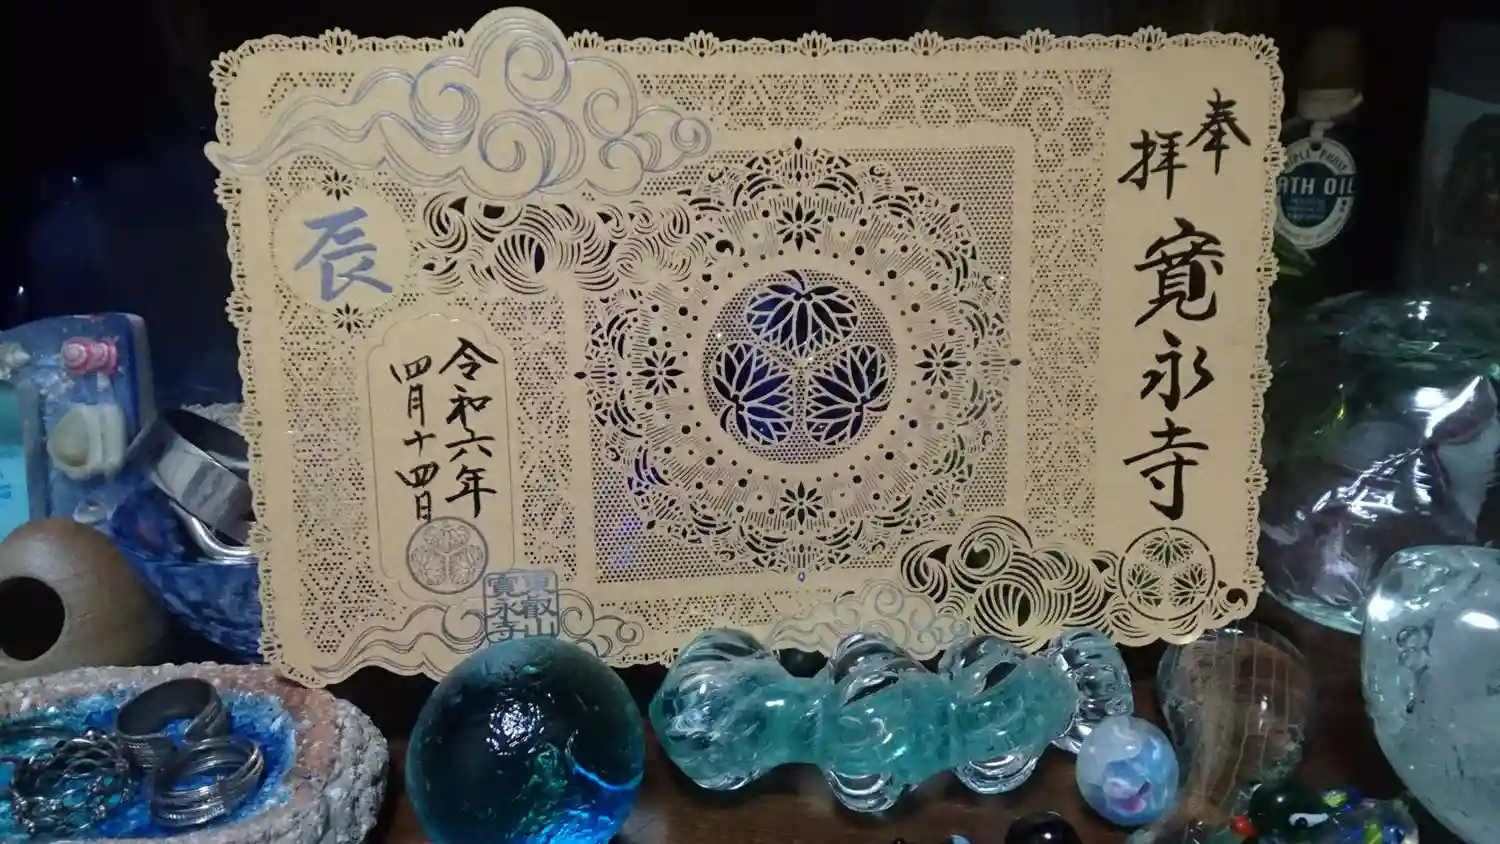 奉
拝
寛永寺
辰
令和六年
四月十四日
東叡山
寛永寺
ATH OIL